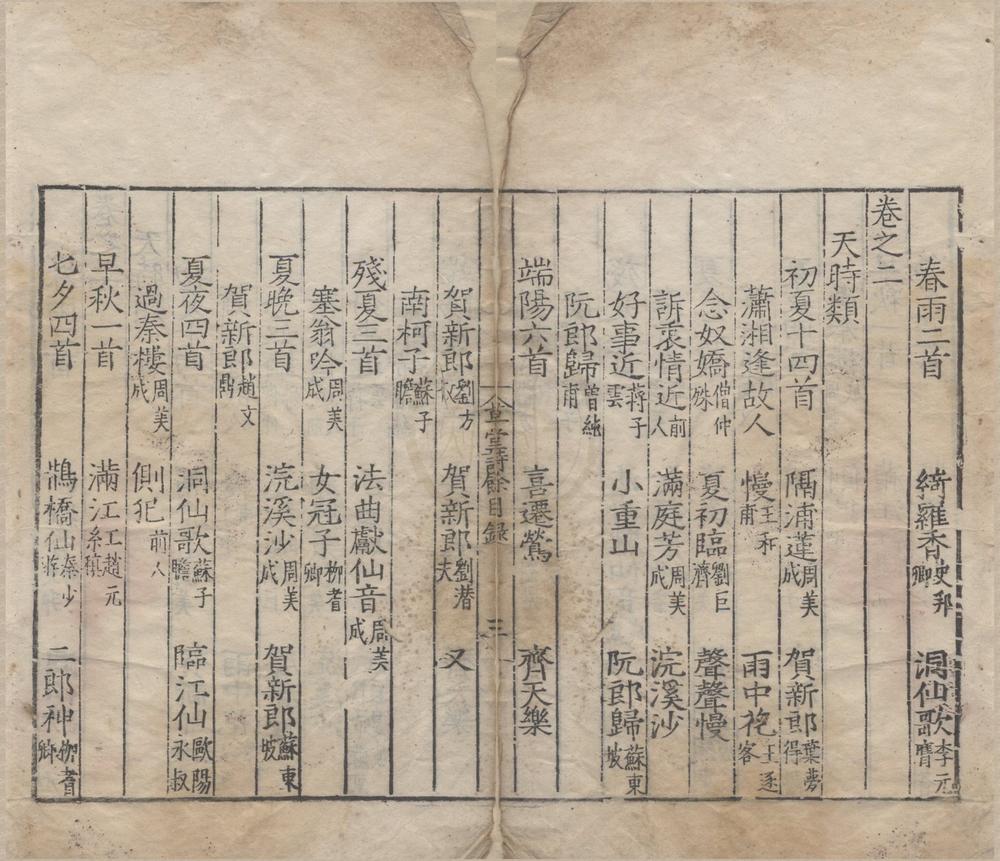 春雨二首 綺羅香史邦卿 洞仙歌李元膺
卷之二
天時類
初夏十四首 隔浦蓮周美成 賀新郎葉夢得
瀟湘逢故人慢王和甫 雨中花王逐客
念奴嬌僧仲殊 夏初臨劉巨濟 聲聲慢
訴衷情近前人 滿庭芳周美成 浣溪沙
好事近蔣子雲 小重山 阮郎歸蘇東坡
阮郎歸曾純甫
端陽六首 喜遷鶯 齊天樂
堂詩餘目錄 三
賀新郎劉方 賀新郎劉潛夫 又
南柯子蘇子瞻
殘夏三首 法曲獻仙音周美成
塞翁吟周美成 女冠子柳耆卿
夏晚三首 浣溪沙周美成 賀新郎蘇東坡
賀新郎趙文鼎
夏夜四首 洞仙歌蘇子瞻 臨江仙歐陽永叔
過秦樓周美成 側犯前人
早秋一首 滿江紅趙元鎮
七夕四首 鵲橋仙秦少游 二郎神柳耆卿